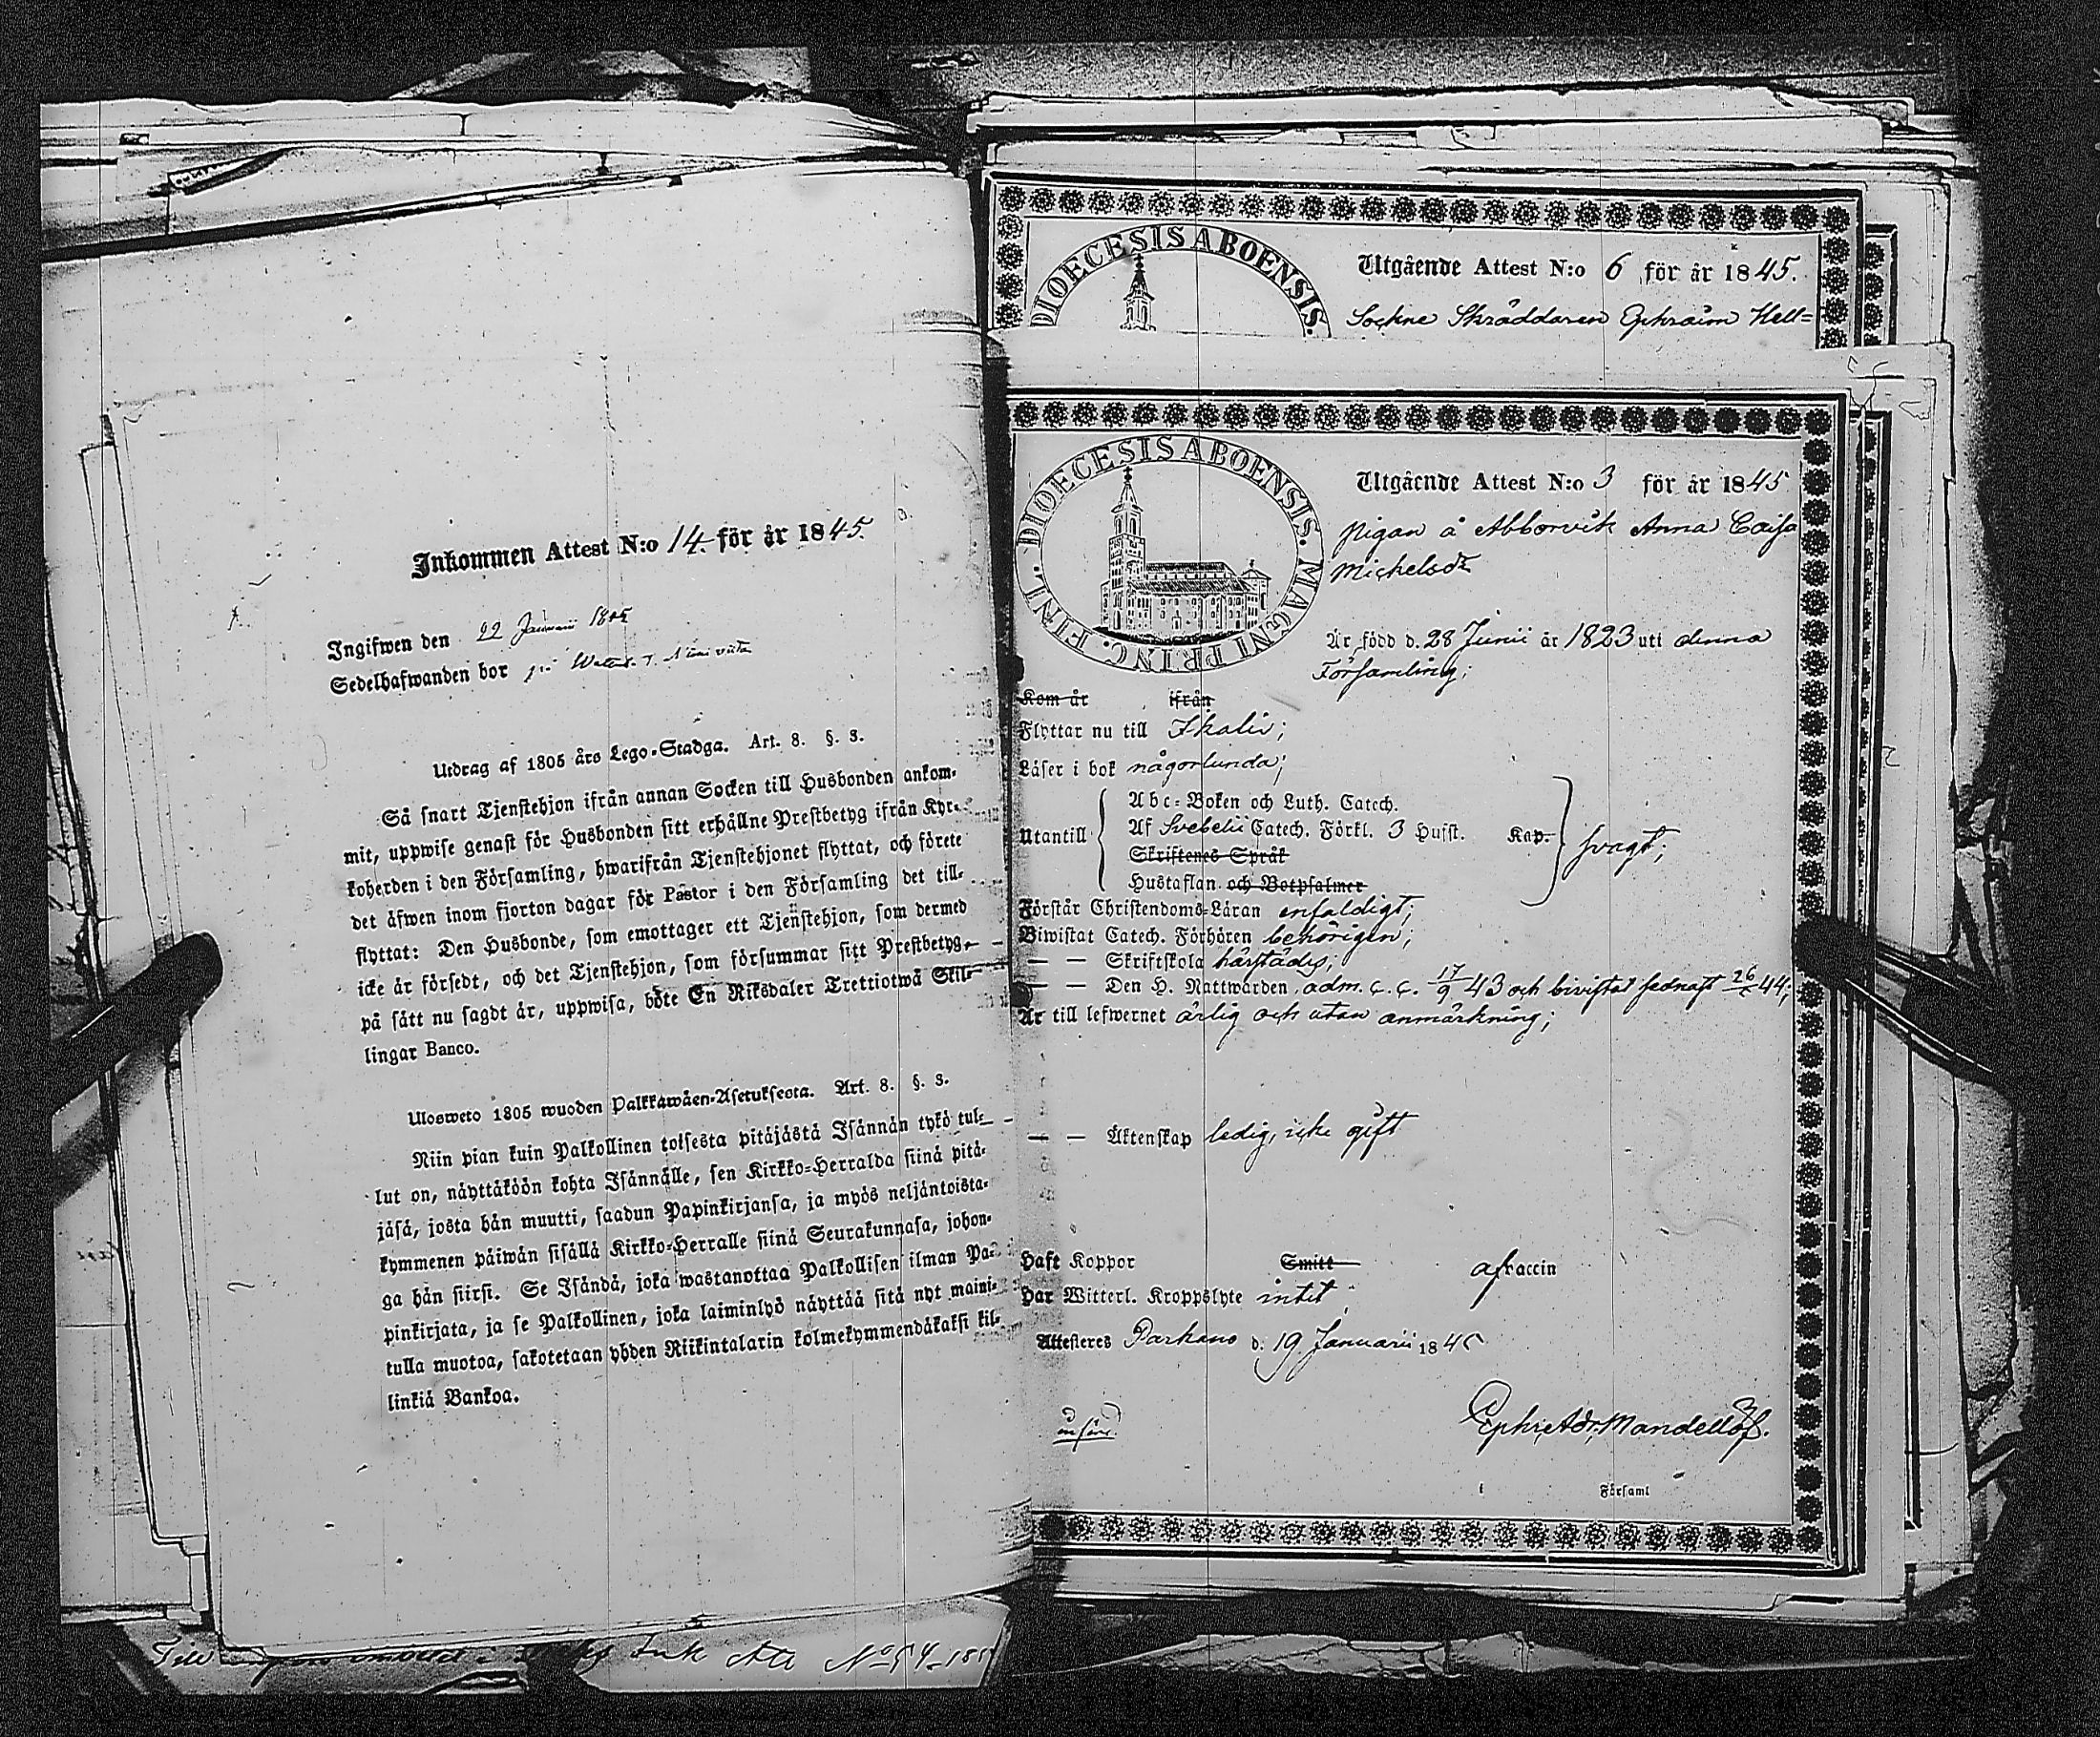 Inkommen Attest N:o 14. för år 1845.
Ingifwen den 22 Januarii 1845
Sedelhafwanden bor på
Utdrag af 1805 års Lego-Stadga. Art. 8. §. 3.
Så snart Tjenstehjon ifrån annan Socken till Husbonden ankom-
mit, uppwise genast för Husbonden sitt erhållne Prestbetyg ifrån Kyr-
koherden i den Församling, hwarifrån Tjenstehjonet flyttat, och förete
det äfwen inom fjorton dagar för Pastor i den Församling det till-
flyttat: Den Husbonde, som emottager ett Tjenstehjon, som dermed
icke är försedt, och det Tjenstehjon, som försummar sitt Prestbetyg,
på sätt nu sagdt är, uppwisa, böte En Riksdaler Trettiotwå Skil-
lingar Banco.
Ulosweto 1805 wuoden Palkkawäen-Asetuksesta. Art. 8. §. 3.
Niin pian kuin Palkollinen toisesta pitäjästä Isännän tykö tul-
lut on, näyttäköön kohta Isännälle, sen Kirkko-Herralda siinä pitä-
jäsä, josta hän muutti, saadun Papinkirjansa, ja myös neljäntoista-
kymmenen päiwän sisällä Kirkko-Herralle siinä Seurakunnasa, johon-
ga hän siirsi. Se Isändä, joka wastanottaa Palkollisen ilman Pa-
pinkirjata, ja se Palkollinen, joka laiminlyö näyttää sitä nyt maini-
tulla muotoa, sakotetaan yhden Riikintalarin kolmekymmendäkaksi kil-
linkiä Bankoa.
Att N:o 54
DIOECESIS ABOENSIS.
Utgående Attest N:o 6 för år 1845.
Sockne Skräddaren Ephraim Hell=
DIOECESIS ABOENSIS. MAGNI PRINC. FINL.
Utgående Attest N:o 3 för år 1845
Pigan å Abborvik Anna Caisa
Michelsdr
Är född d. 28 Junii år 1823 uti denna
Församling;
Kom år ifrån
Flyttar nu till Ikalis;
Läser i bok någorlunda;
Abc-Boken och Luth. Catech.
Utantill Af Svebelii Catech. Förkl. 3 Hufst. Kap. svagt;
Skriftenes Språk
Hustaflan och Botpsalmer
Förstår Christendoms-Läran enfaldigt;
Biwistat Catech. Förhören behörigen;
— — Skriftskola härstädes;
— — Den H. Nattwarden adm. c. c. 17/9 43 och bivistat sednast 26/5 44;
Är till lefwernet ärlig och utan anmärkning;
— — Äktenskap ledig, icke gift
Haft Koppor Smitt af Vaccin
Har Witterl. Kroppslyte intet
Attesteres Parkano d. 19 Januarii 1845
Ephr. Adr. Mandellöf.
i Församl